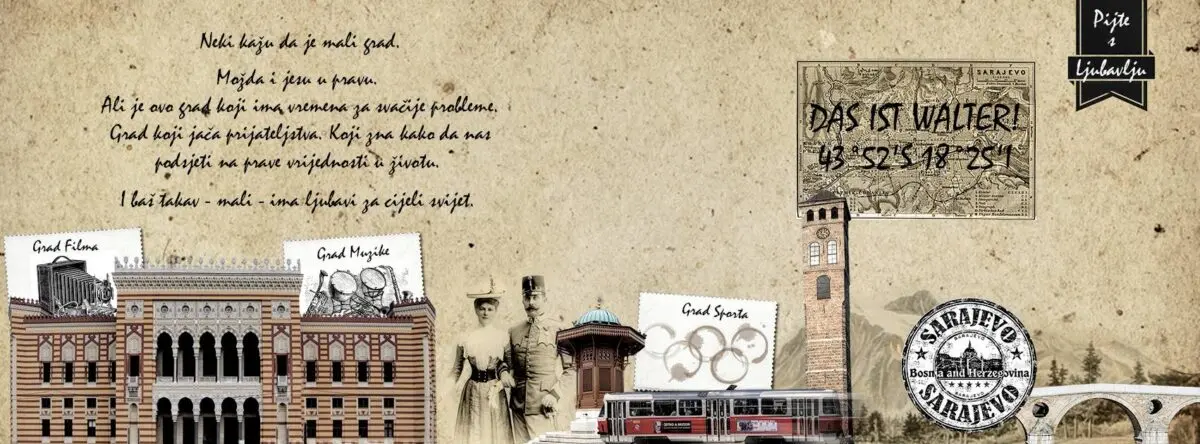 Neki kažu da je mali grad.
Možda i jesu u pravu.
Ali je ovo grad koji ima vremena za svačije probleme.
Grad koji jača prijateljstva. Koji zna kako da nas
podsjeti na prave vrijednosti u životu.
I baš takav - mali - ima ljubavi za cijeli svijet.
Pijte
s
Ljubavlju
SARAJEVO
DAS IST WALTER!
43°52'S 18°25'I
Grad Filma
Grad Muzike
Grad Sporta
SARAJEVO
Bosnia and Herzegovina
SARAJEVO